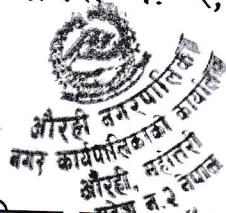 औरही नगरपालिका
नगर कार्यपालिकाको कार्यालय
औरही, महोत्तरी
प्रदेश नं. २ नेपाल